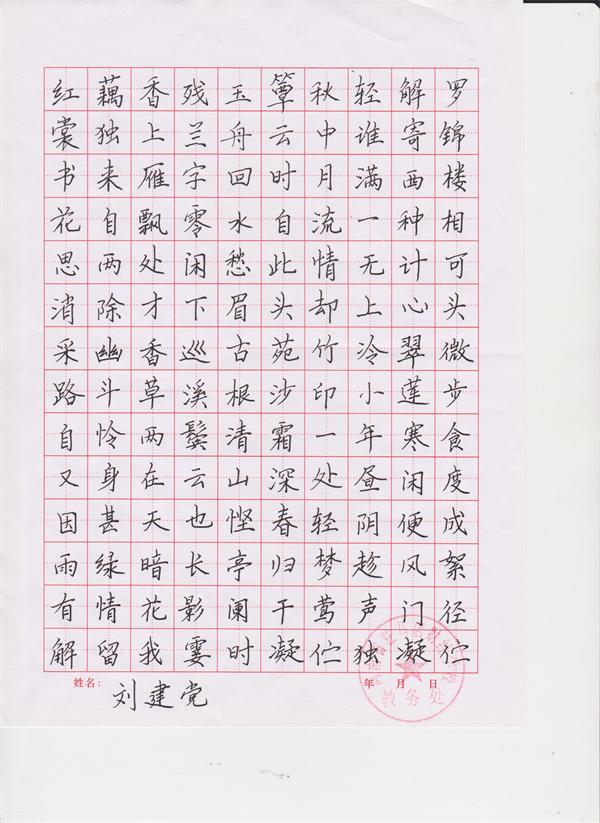 红藕香残玉簟秋轻解罗
裳独上兰舟云中谁寄锦
书来雁字回时月满西楼
花自飘零水自流一种相
思两处闲愁此情无计可
消除才下眉头却上心头
采幽香巡古苑竹冷翠微
路斗草溪根沙印小莲步
自怜两鬓清霜一年寒食
又身在云山深处昼闲度
因甚天也悭春轻阴便成
雨绿暗长亭归梦趁风絮
有情花影阑干莺声门径
解留我霎时凝伫独凝伫
姓名：刘建党 年 月 日
教务处